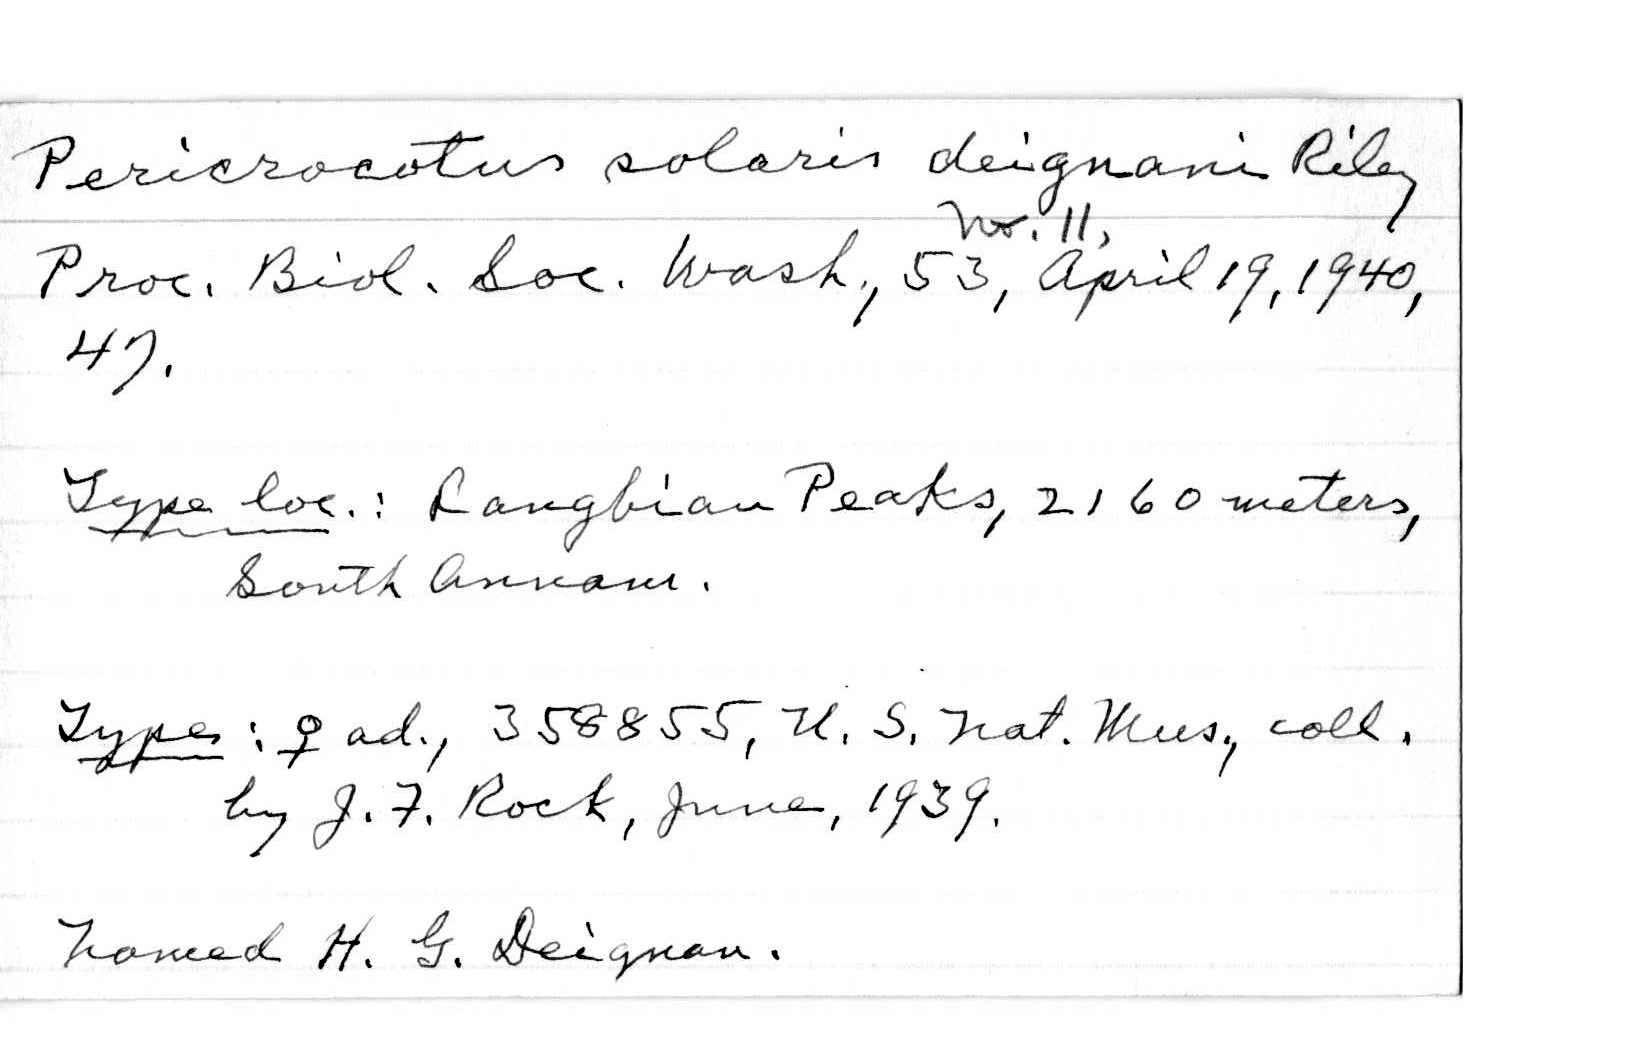 Pericrocotus solaris deignani Riley
No. 11,
Proc. Biol. Soc. Wash., 53, April 19, 1940,
47.
Type loc.: Langbian Peaks, 2160 meters,
South Annam.
Type: ♀ ad., 358855, U. S. Nat. Mus., coll.
by J. F. Rock, June, 1939.
Named H. G. Deignan.